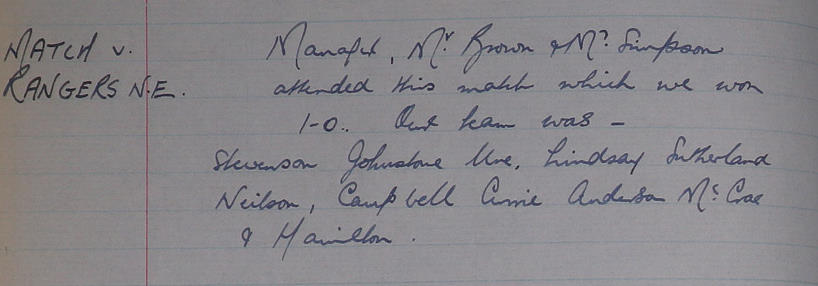 MATCH v.
RANGERS N.E.
Manager, Mr Brown & Mr Simpson
attended this match which we won
1-0. Our team was -
Stevenson Johnstone Ure, Lindsay Sutherland
Neilson, Campbell Currie Anderson McCrae
& Hamilton.